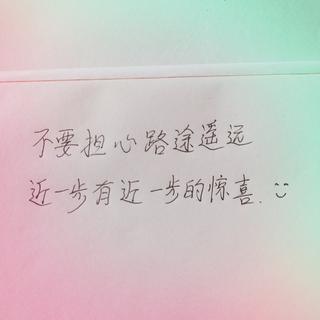 不要担心路途遥远
近一步有近一步的惊喜.